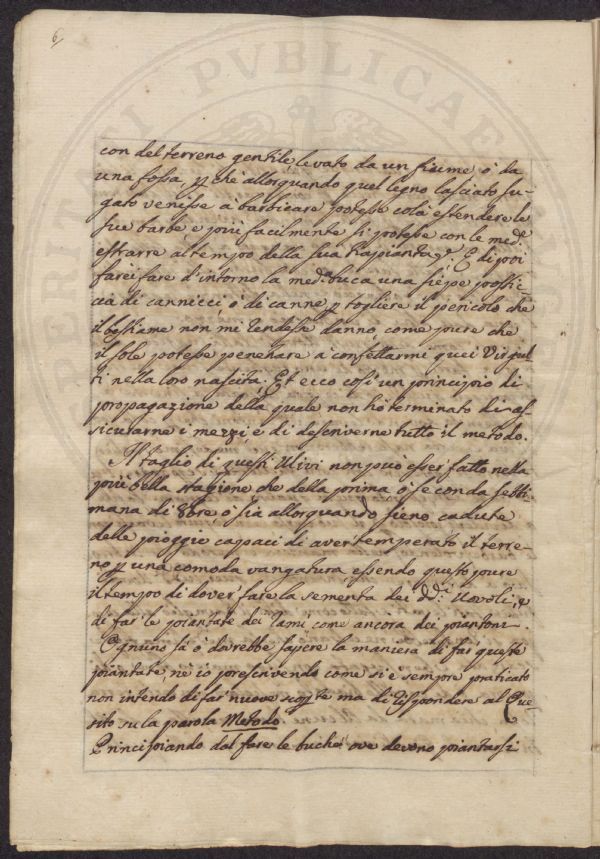 6/
con del terreno gentile levato da un fiume ò da
una fossa, p chè allorquando quel legno lasciato su-
gato venisse à barbicare potesse colà estendere le
sue barbe e più facilmente si potesse con le med.e
estrarre al tempo della sua trapiantag.e E di poi
farei fare d'intorno la med.a buca una siepe postic-
cia di cannicci ò di canne p togliere il pericolo che
il bestiame non mi rendesse danno, come pure che
il sole potesse penetrare à confettarmi quei Virgul-
ti nella loro nascita; Et ecco così un principio di
propagazione della quale non hò terminato di as-
sicurarne i mezzi e di descriverne tutto il metodo.
Il taglio di questi Ulivi non può esser fatto nella
più bella stagione che della prima, ò seconda setti-
mana di 8bre, ò sia allorquando sieno cadute
delle pioggie capaci di aver temperato il terre-
no p una comoda vangatura, essendo questo pure
il tempo di dover fare la sementa dei dd.i Uovoli, e
di far le piantate dei rami come ancora dei piantoni.
Ognuno sà ò dovrebbe sapere la maniera di far queste
piantate, nè io prescrivendo come si è sempre praticato
non intendo di far nuove scopte ma di rispondere al Que-
sito su la parola Metodo
Principiando dal fare le buche ove devono piantarsi
PVBLICAE